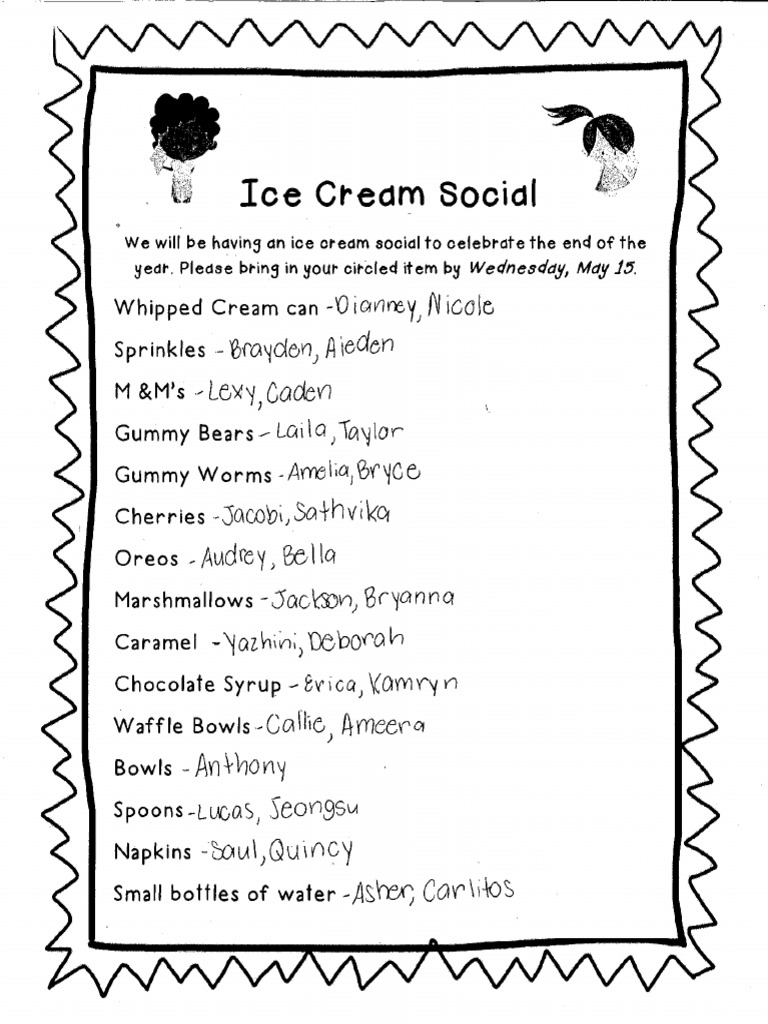 Ice Cream Social
We will be having an ice cream social to celebrate the end of the
year. Please bring in your circled item by Wednesday, May 15.
Whipped Cream can -Dianney, Nicole
Sprinkles - Brayden, Aieden
M &M's - Lexy, Caden
Gummy Bears - Laila, Taylor
Gummy Worms - Amelia, Bryce
Cherries - Jacobi, Sathvika
Oreos - Audrey, Bella
Marshmallows - Jackson, Bryanna
Caramel - Yazhini, Deborah
Chocolate Syrup - Erica, Kamryn
Waffle Bowls - Callie, Ameera
Bowls - Anthony
Spoons - Lucas, Jeongsu
Napkins - Saul, Quincy
Small bottles of water - Asher, Carlitos